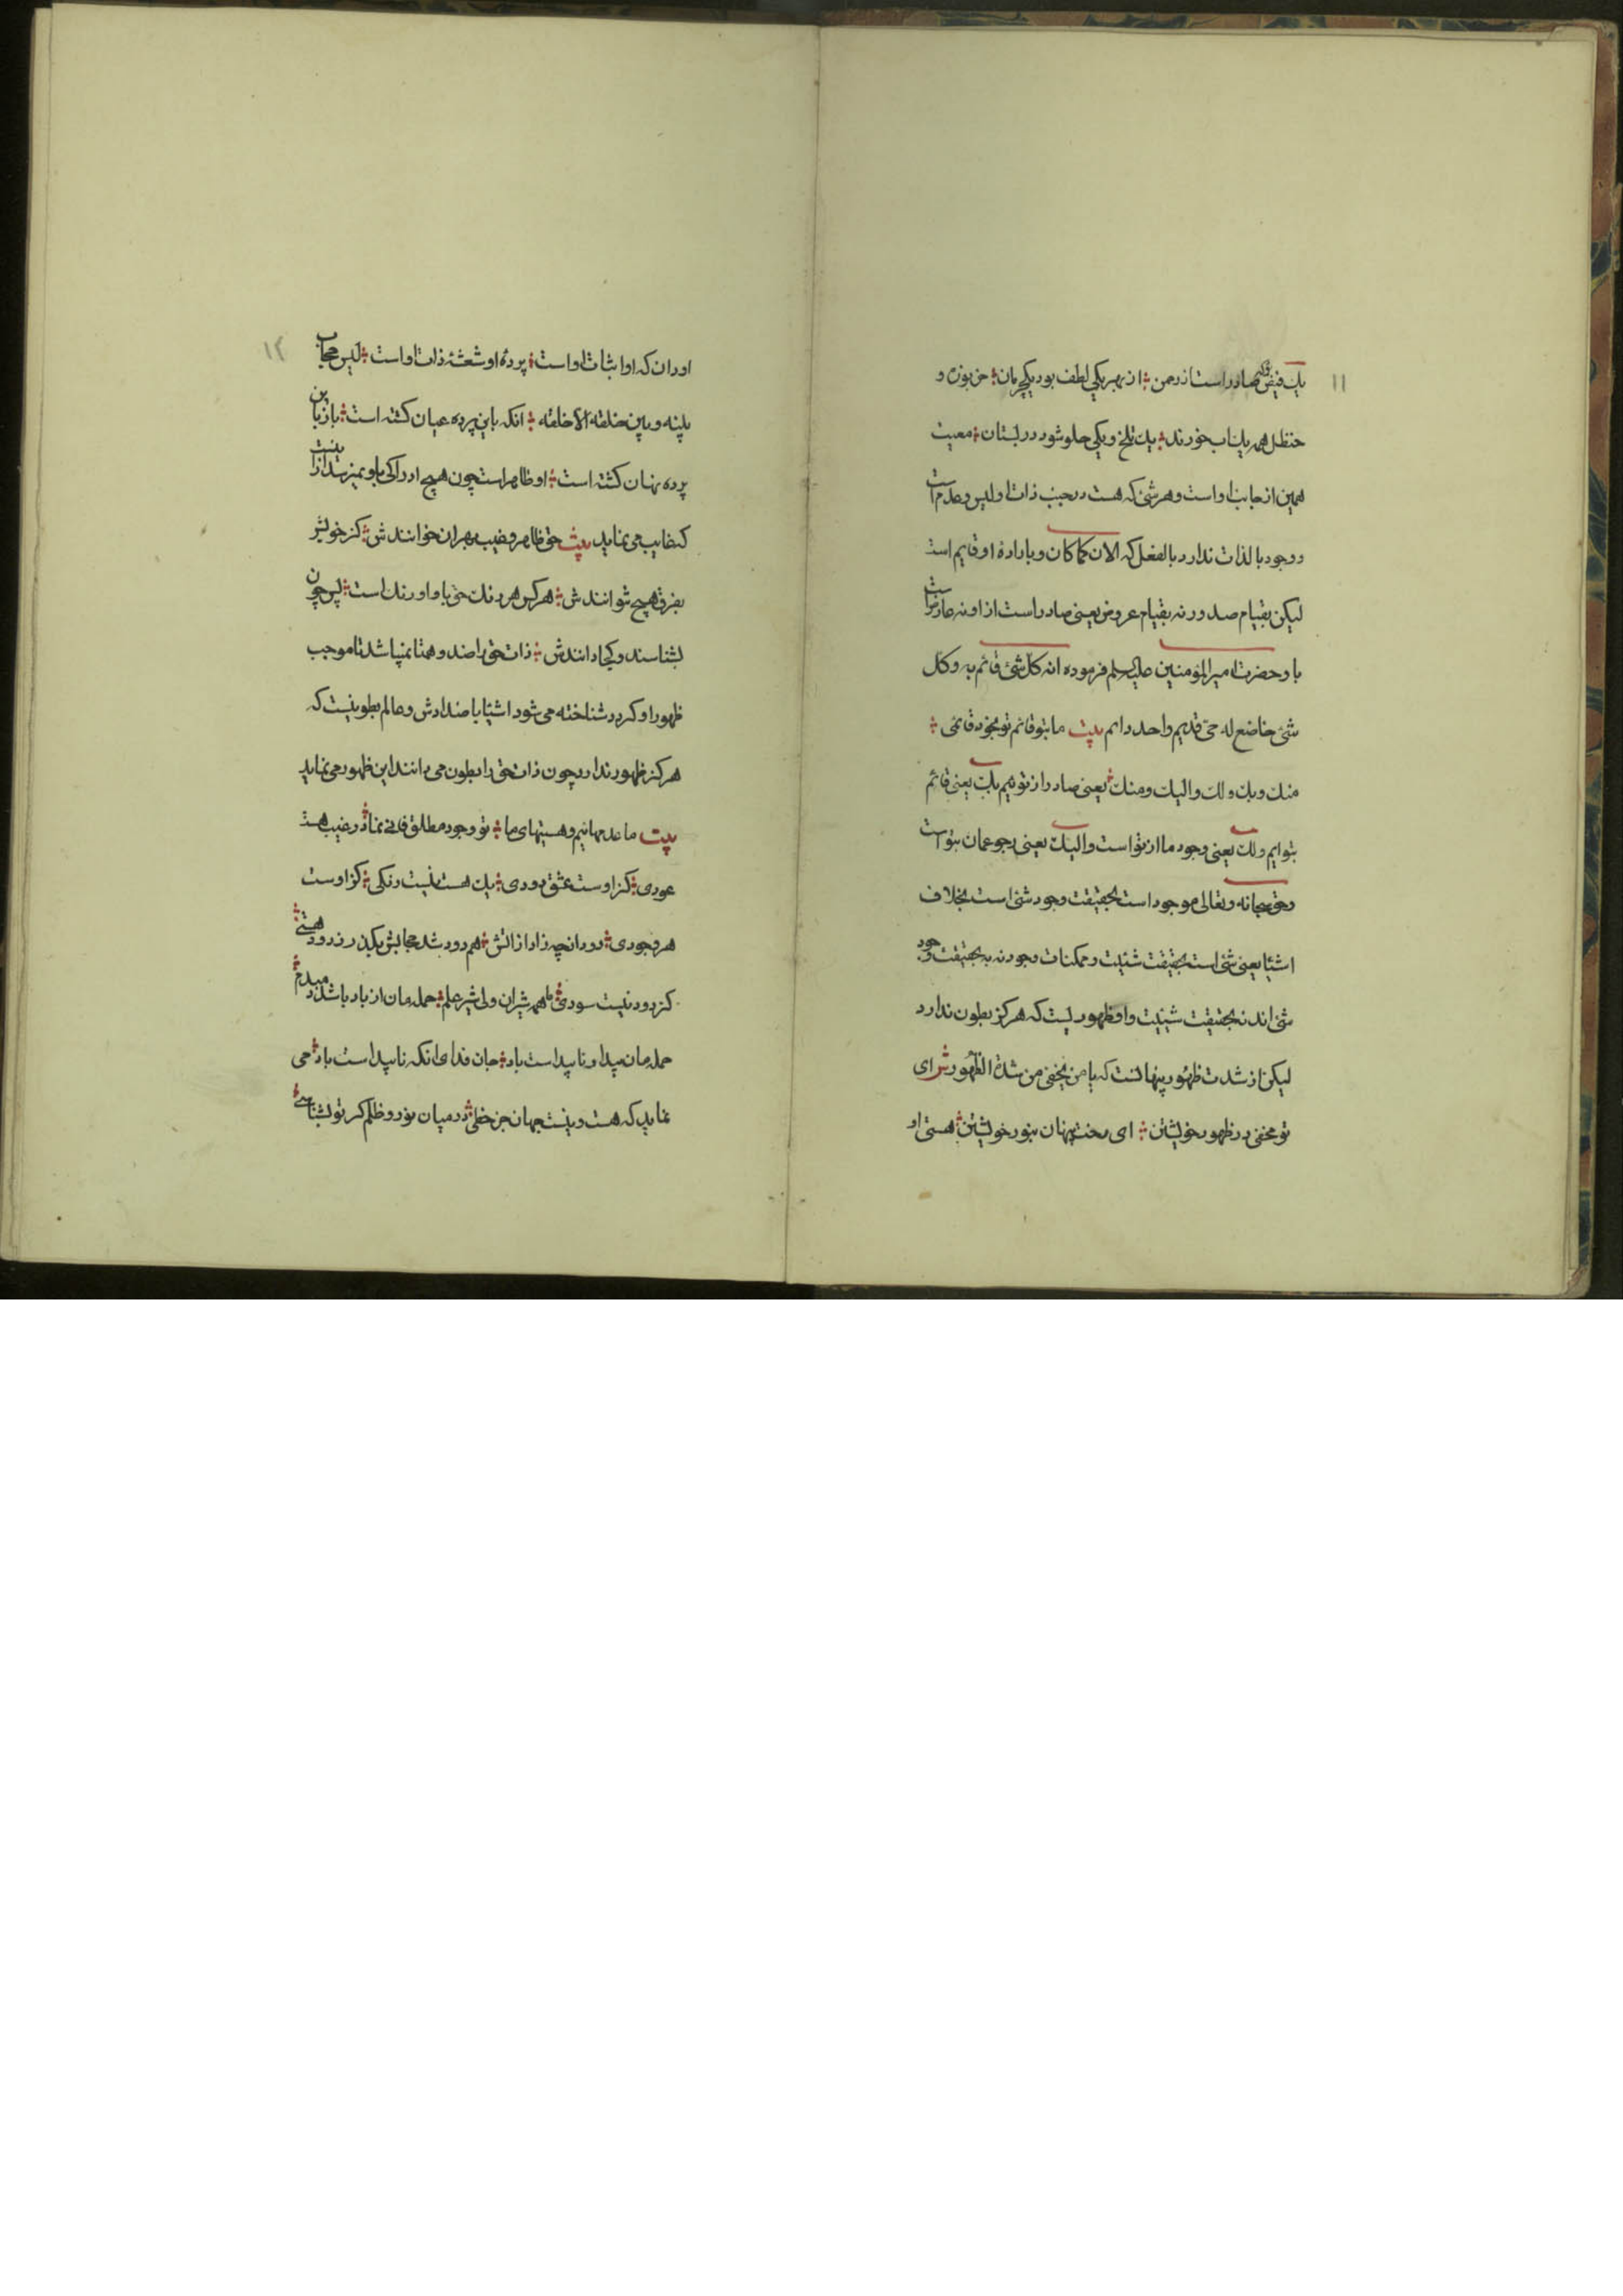 ۱۱
یک فیض صادر است از رحمن ؞ از بهر یکی لطف بود یکی حرمان ؞ خربوزه و
حنظل همه یک آب خورند ؞ یک تلخ و یکی حلو شود در بستان ؞ معیت
همین از جانب او است و هر شئ که هست در جنب ذات او لیس و عدم است
و وجود بالذات ندارد بالفعل که الان کما کان و باراده او قایم است
لیکن بقیام صدور نه بقیام عروض یعنی صادر است از او نه عارض است
باو حضرت امیر المؤمنین علیه السلام فرموده انه کل شئ قائم به و کل
شئ خاضع له حی قدیم واحد دائم بیت ما بتو قائم تو بخود قائمی ؞
منک و بک و لک و الیک و منک یعنی صادر از توئیم بک یعنی قائم
بتوایم و لک یعنی وجود ما از تو است و الیک یعنی رجوعمان بتو است
و حق سبحانه و تعالی موجود است بحقیقت وجود شئ است بخلاف
اشیا یعنی شئ است بحقیقت شیئیت و ممکنات وجود نه بحقیقت وجود
شئ اند نه بحقیقت شیئیت و او ظهوریست که هرگز بطون ندارد
لیکن از شدت ظهور پنهانست که یا من یخفی من شدة الظهور شر ای
تو مخفی در ظهور خویشتن ؞ ای رخت پنهان بنور خویشتن ؞ هستی او
۱۲
اوران که او اثبات او است ؞ پرده او شعشعه ذات او است ؞ لیس حجاب
بینه و بین خلقه الا خلقه ؞ انکه باین پرده عیان کشته است ؞ باز باین
پرده نهان کشته است ؞ او ظاهر است چون هیچ ادراکی باو نمیرسد از اینست
که غایب می نماید بیت حق ظاهر و غیب بهر ان خوانندش ؞ کز خویش
بفرق هیچ نتوانندش ؞ هرکس هر رنک حق با او رنک است ؞ پس چون
بشناسند و کجا دانندش ؞ ذات حق را ضد و همتا نمیباشد تا موجب
ظهور او کردد شناخته می شود اشیا باضدادش و عالم بطونیست که
هرکز ظهور ندارد چون ذات حق را بطون می دانند این ظهور می نماید
بیت ما عدمهائیم و هستیهای ما ؞ تو وجود مطلق فانی نما ؞ در غیب هست
عوری ؞ کز اوست عشق دوری ؞ یک هست نیست رنکی ؞ کز اوست
هر وجودی ؞ دود انچه زاد از اتش ؞ هم دود شد حجابش بکذر ز دود هستی ؞
کز دود نیست سودی ؞ ما همه شیران ولی شیر علم ؞ حمله مان از باد باشد دمبدم ؞
حمله مان پیدا و ناپیداست باد ؞ جان فدای انکه ناپیداست باد ؞ می
نماید که هست و نیست جهان جز خطی ؞ در میان نور و ظلم کر تو بشناسی ؞